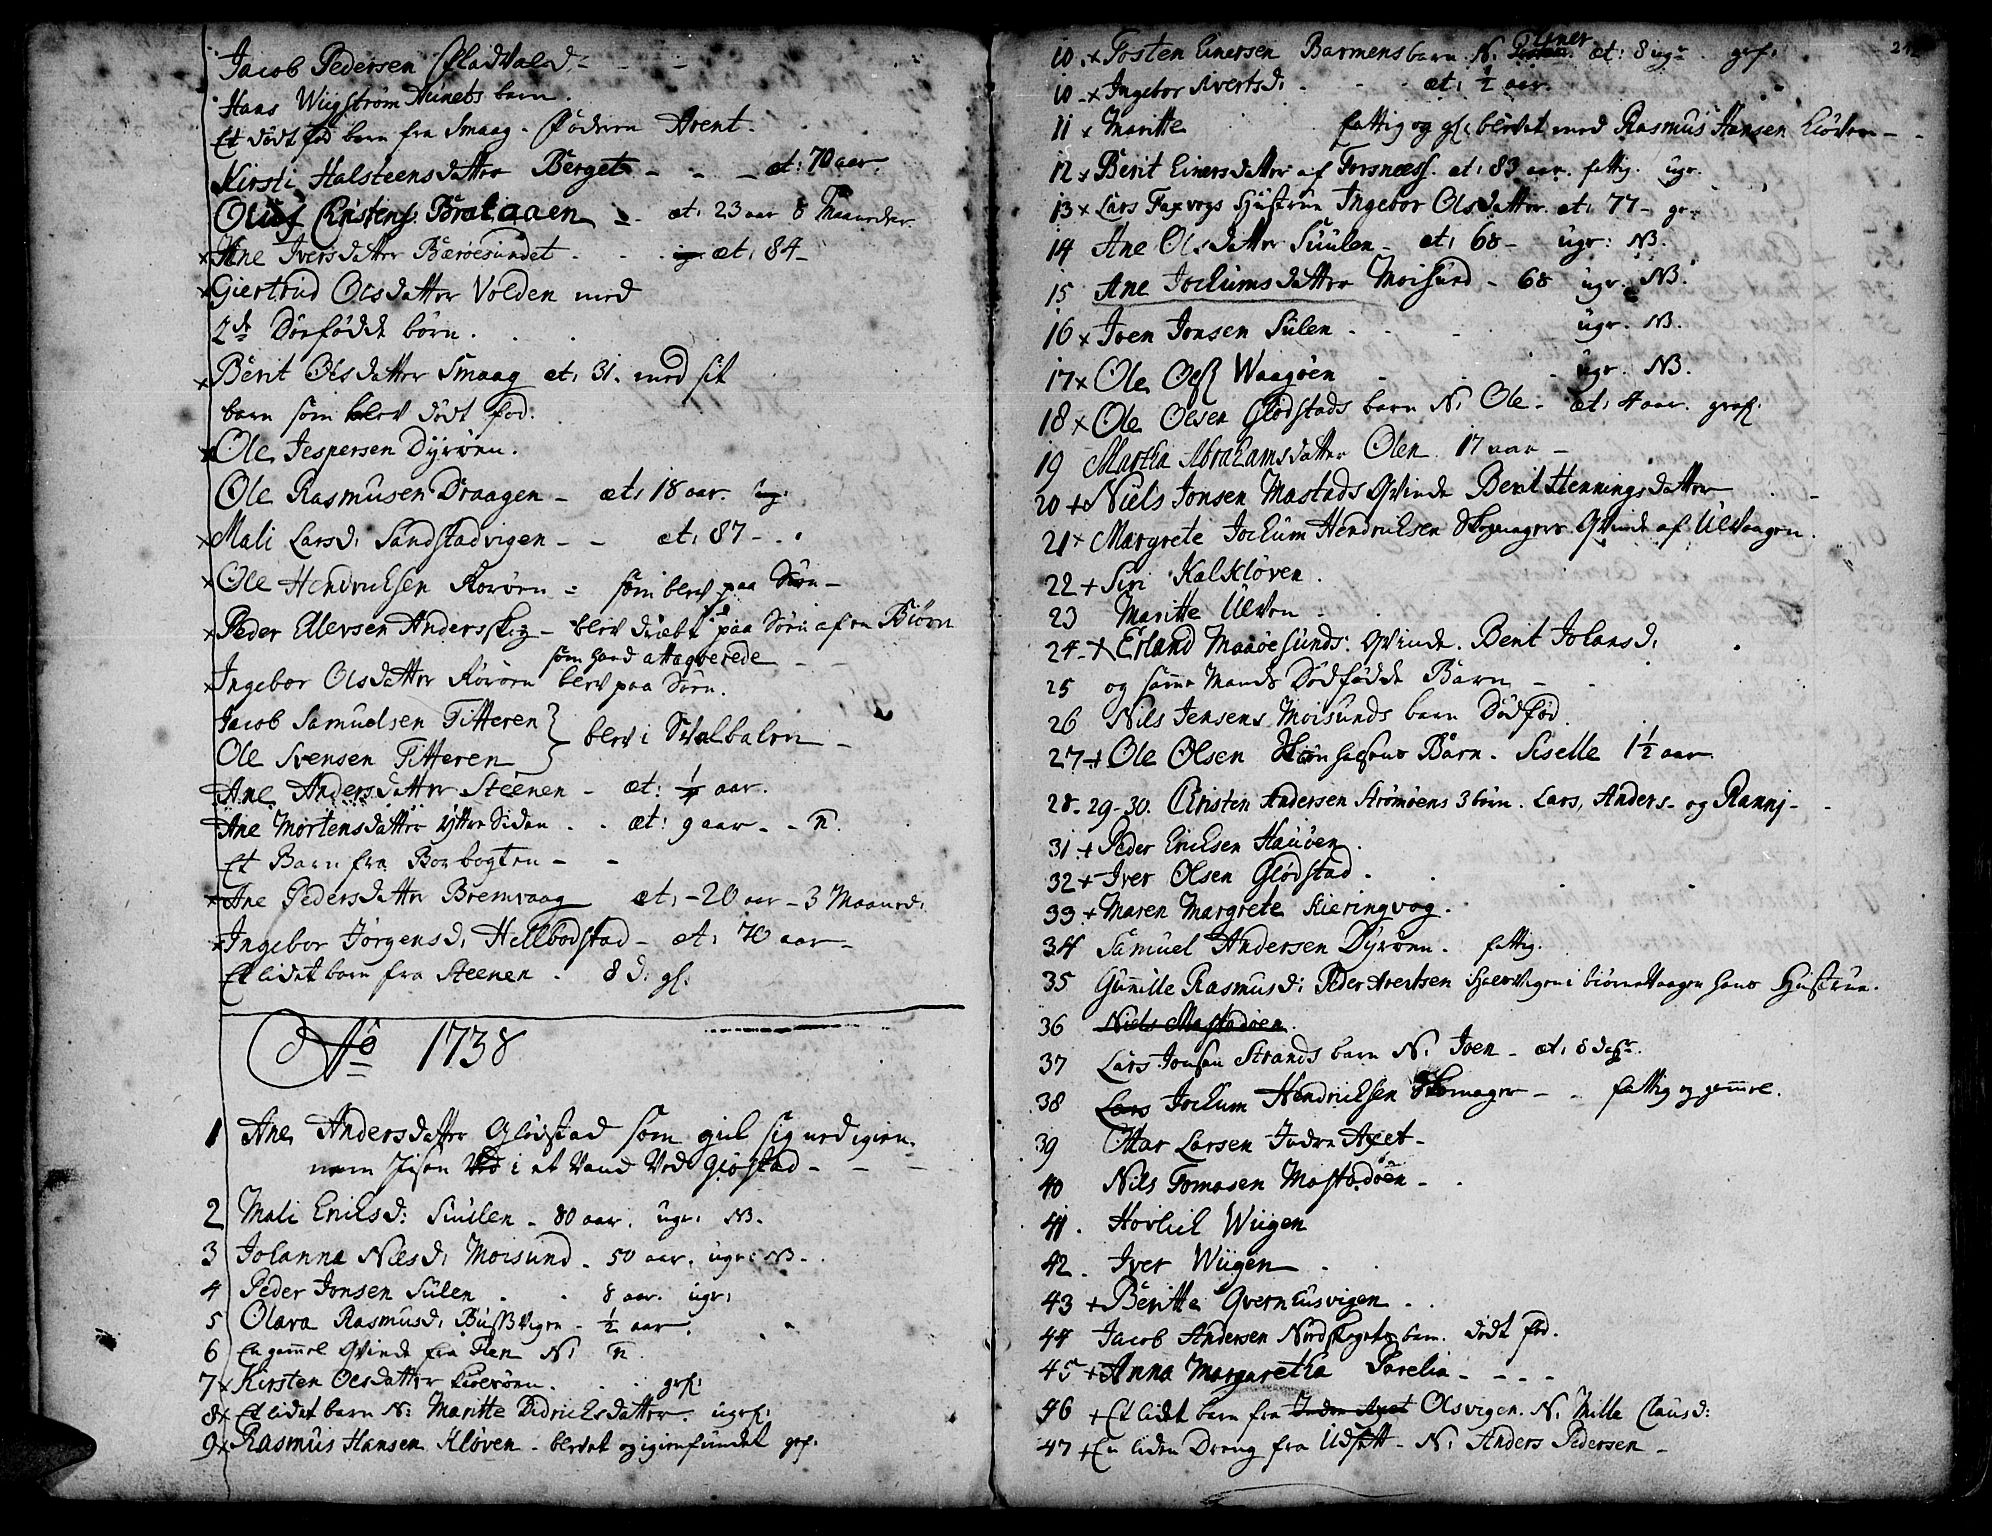 Jacob Pedersen Fladvald
Hans Wügstrøm barn.
Et dødt fød barn fra Smaag. Fødren Arent.
Kirsti Halsteensdatter Berget - - - æt: 70 aar.
Oluf Christens. Brataaen - æt: 23 aar 8 Maaneder
x Ane Iversdatter Barøesundet - - - æt: 84 -
x Giertrud Olsdatter Volden med
2de Dødfødde børn.
x Berit Olsdatter Smaag æt: 31. med sit
barn som blev dødt fød.
x Ole Jespersen Dyrøen.
Ole Rasmusen Draagen - æt: 18 aar.
x Mali Larsd: Sandstadvigen - - æt: 87 -
x Ole Hendrichsen Rorøen - som blev paa Søen -
x Peder Ellevsen Andersskog - blev dræbt paa Søen af en Biørn
som hand attaqverede
x Ingebor Olsdatter Rorøen blev paa Søen.
Jacob Samuelsen Titteren }
Ole Svensen Titteren } blev i Svalbalen -
Ane Andersdatter Steenen - æt: ¼ aar.
Ane Mortensdatter Yttre Siden - - æt: 9 aar - - n.
Et Barn fra Borbogten - -
x Ane Pedersdatter Bremvaag æt: - 20 aar - 3 Maaned:
x Ingebor Jørgensd: Hellbodstad - æt: 70 aar -
Et lidet barn fra Steenen - 8 d: gf:
Ao 1738
1 Ane Andersdatter Glødstad som gik sig ned igien-
nem Jisen i et Vand Ved Giøstad - - -
2 Mali Ericksd: Suulen - 80 aar. ugr: NB.
3 Johanna Næsd: Moisund - 50 aar. ugr: NB -
4 Peder Jonsen Sülen - 8 aar. ugr:
5 Olava Rasmusd: Büssvigen - ½ aar.
6 En gammel Qvinde fra N: n.
7 x Kirsten Olsdatter - - - grf:
8 x Et lidet barn N: Maritte Didrichsdatter. ugrf:
9 x Rasmus Hansen Kløven - blevet og igienfundet grf.
10. x Tosten Einersen Barmens barn N: Einer æt: 8 ugr. grf:
10 - x Ingebor Sivertsd: - - æt: ½ aar.
11 x Maritte fattig og gf: blevet med Rasmus Hansen Kløven - -
12 x Berit Einersdatter af Forsness. æt: 83 aar. fattig. ugr.
13 x Lars Faxvogs Hustrue Ingebor Olsdatter. æt: 77 - gr.
14 Ane Olsdatter Suulen - æt: 68 - ugr: NB.
15 Ane Jochumsdatter Moisund - 68 ugr. NB.
16 x Joen Jonsen Sülen - - - ugr. NB.
17 x Ole Olss Waagøen - - ugr. NB.
18 x Ole Olsen Glødstads barn N: Ole - æt: 4 aar. graf:
19 Martha Abrahamsdatter Olen. 17 aar -
20 + Niels Jonsen Mastads Qvinde Berit Henningsdatter -
21 x Margrete Jochum Hendrichsen Skomagers Qvinde af Ulvaagen.
22 + Siri Kalkløven.
23 Maritte Ulven
24 - x Erland Maaøesunds. Qvinde. Berit Johansd:
25 og samme Mands Dødfødde Barn -
26 Nils Jensens Moisunds barn Dødfød.
27 - + Ole Olsen Barn. Siselle 1½ aar
28 - 29 - 30. Christen Andersen Strømøens 3 børn. Lars, Anders - og Rannj -
31 + Peder Ericksen Hauøen.
32 + Iver Olsen Glødstad.
33 + Maren Margrete Kieringvog.
34 Samuel Andersen Dyrøen. fattig.
35 Gunille Rasmusd: Peder Arentsen i hans Hustrue.
36 Niels Mastadøen.
37 Lars Jonsen Strands barn N: Joen - æt: 8 dage.
38 Lars Jochum Hendrichsen Skomager - - fattig og gammel.
39 Ottar Larsen Indre Axet -
40 Nils Tomasen Mastadøen - -
41. Horlich Wiigen
42. Iver Wiigen
43 + Beritte Qvernhusvigen -
44 Jacob Andersen Nordskogets barn. dødt fød.
45 + Anna Margaretha Parelia - - - -
46 + Et lidet barn fra Indre Axet Olsvigen. N: Mille Clausd:
47 + En liden Dreng fra Udsett - N: Anders Pedersen -